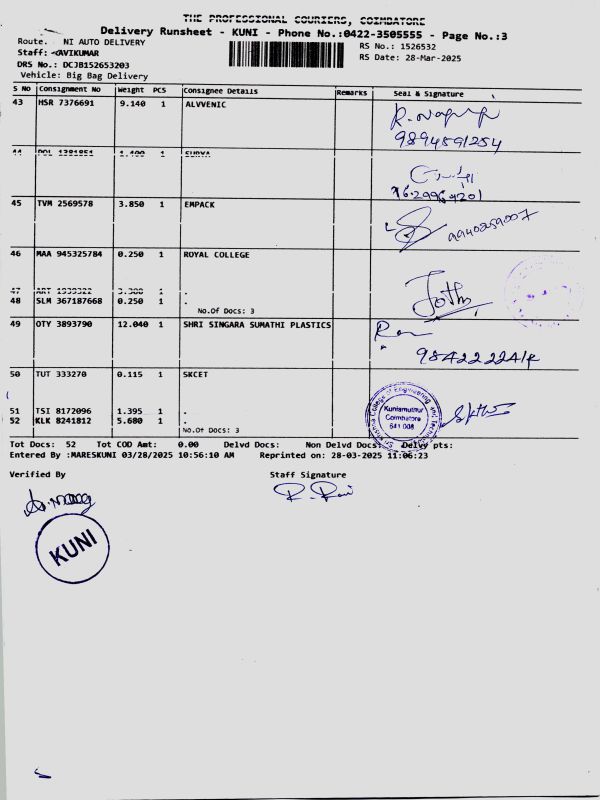 THE PROFESSIONAL COURIERS, COIMBATORE
Delivery Runsheet - KUNI - Phone No.:0422-3505555 - Page No.:3
Route. NI AUTO DELIVERY
RS No.: 1526532
Staff: KAVIKUMAR
RS Date: 28-Mar-2025
DRS No.: DCJB152653203
Vehicle: Big Bag Delivery
S No Consignment No Weight PCS Consignee Details Remarks Seal & Signature
43 HSR 7376691 9.140 1 ALVVENIC
9894591254
44 1.400 1 SURYA
45 TVM 2569578 3.850 1 EMPACK
9940859007
46 MAA 945325784 0.250 1 ROYAL COLLEGE
47 3.380 1 .
48 SLM 367187668 0.250 1 .
No.Of Docs: 3
Jothi
49 OTY 3893790 12.040 1 SHRI SINGARA SUMATHI PLASTICS
50 TUT 333270 0.115 1 SKCET
Kuniamuthur
Coimbatore
641 008
51 TSI 8172096 1.395 1 .
52 KLK 8241812 5.680 1 .
No.Of Docs: 3
Tot Docs: 52 Tot COD Amt: 0.00 Delvd Docs: Non Delvd Docs: Delvy pts:
Entered By :MARESKUNI 03/28/2025 10:56:10 AM Reprinted on: 28-03-2025 11:06:23
Verified By
Staff Signature
KUNI